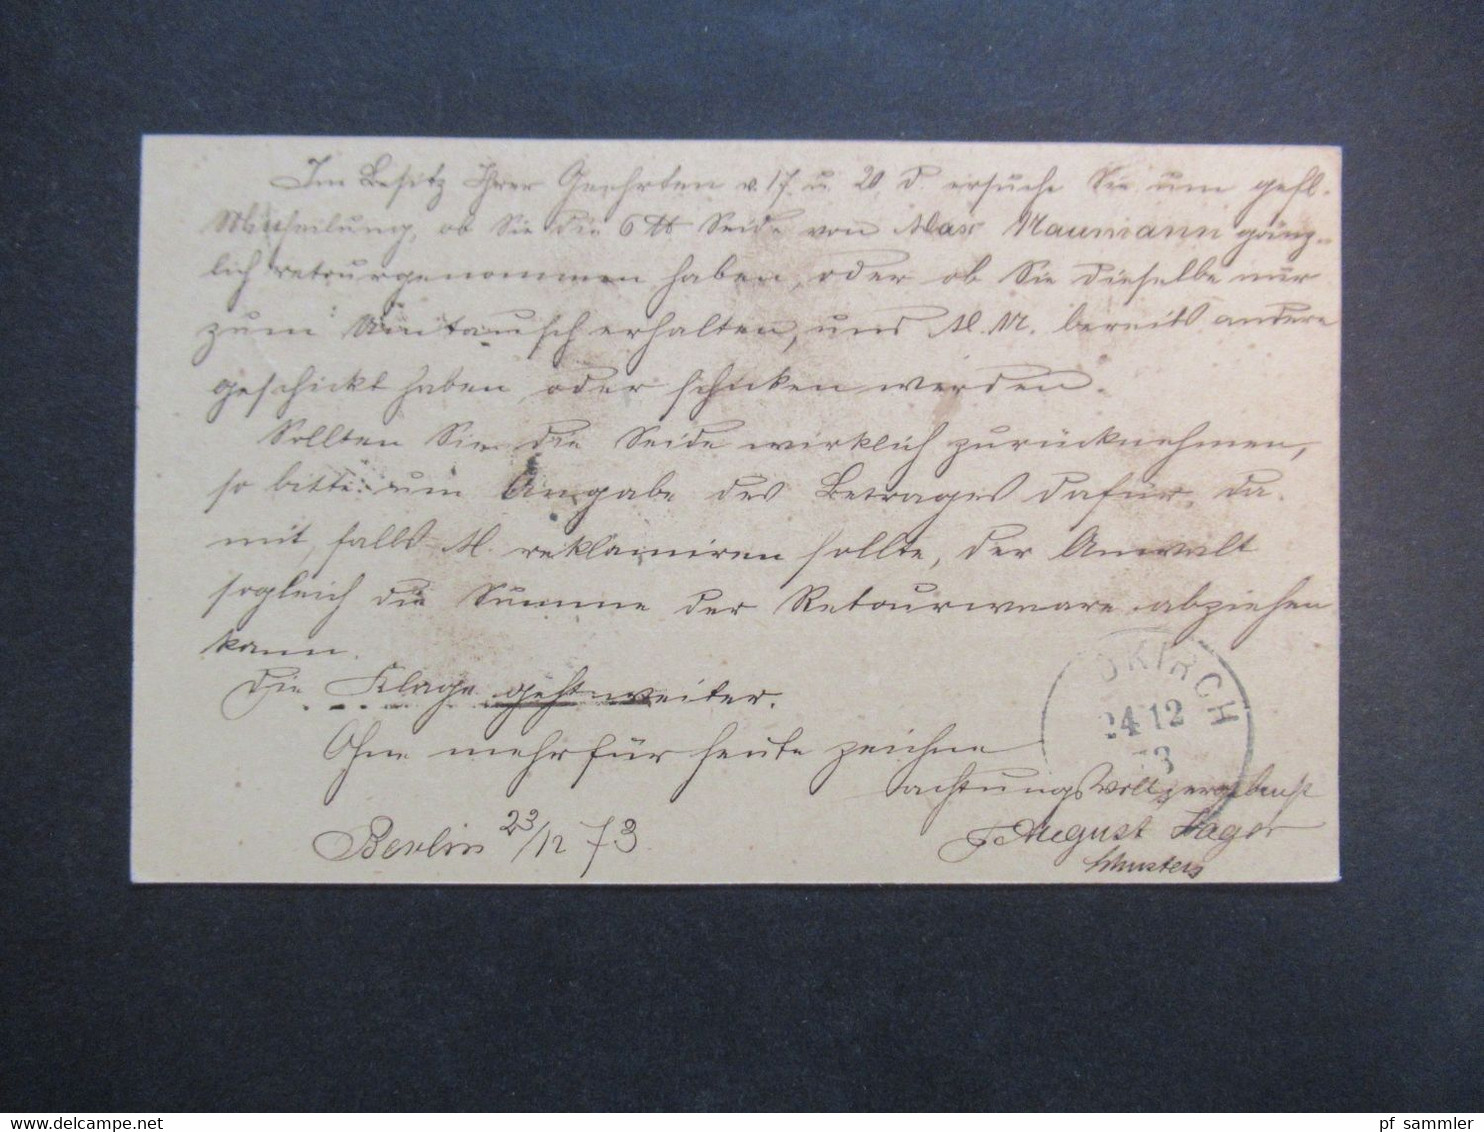 Im Besitz Ihrer Geehrten v. 17. u. 20. d. ersuche Sie um gefl.
Mittheilung, ob Sie die 6 ℔ Seide von Max Naumann gänz-
lich retourgenommen haben, oder ob Sie dieselbe nur
zum Umtausch erhalten, und M. N. bereits andere
geschickt haben oder schicken werden.
Sollten Sie die Seide wirklich zurücknehmen,
so bitte um Angabe des Betrages dafür, da-
mit, falls M. reklamiren sollte, der Anwalt
sogleich die Summe der Retourwaare abziehen
kann.
Die Klage geht weiter.
Ohne mehr für heute zeichne
achtungsvoll ergebenst
August Hager
Berlin 23/12 73
DKIRCH
24 12
73
www.delcampe.net
pf_sammler